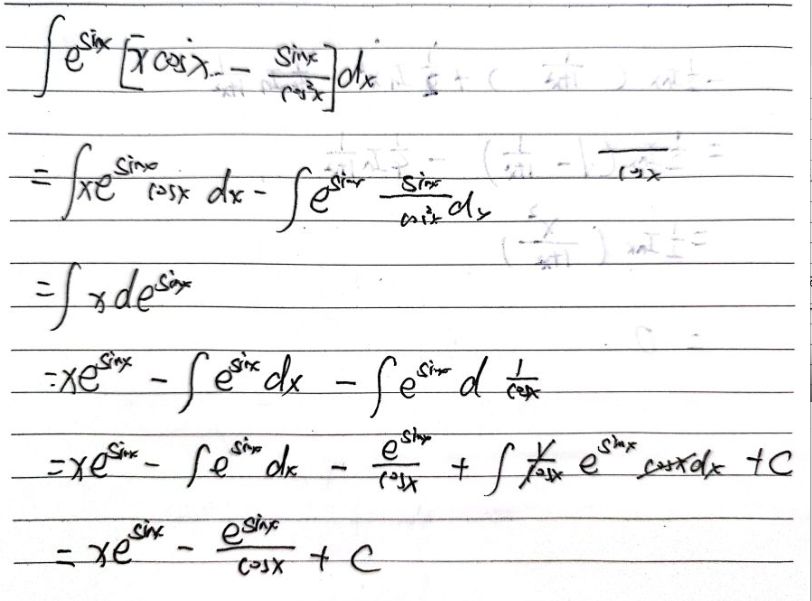 ∫ e^{sinx} [x cosx - sinx/cos²x] dx
= ∫ x e^{sinx} cosx dx - ∫ e^{sinx} sinx/cos²x dx    /cosx
= ∫ x d e^{sinx}
= x e^{sinx} - ∫ e^{sinx} dx - ∫ e^{sinx} d 1/cosx
= x e^{sinx} - ∫ e^{sinx} dx - e^{sinx}/cosx + ∫ 1/cosx e^{sinx} cosx dx + C
= x e^{sinx} - e^{sinx}/cosx + C